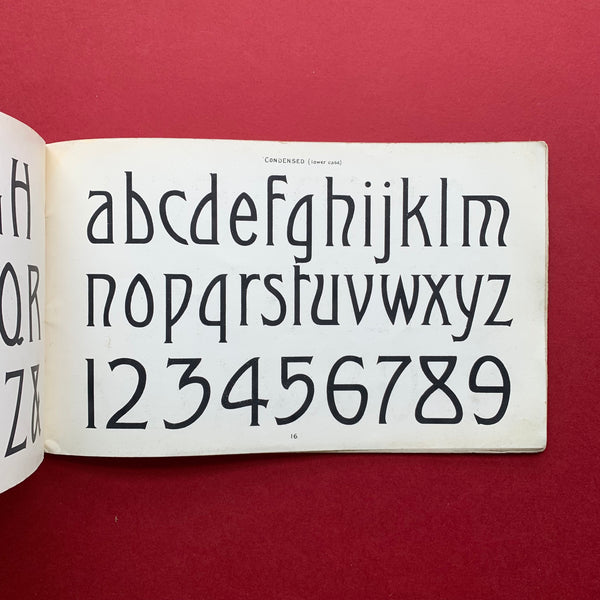 H
QR
Z&
CONDENSED (lower case)
abcdefghijklm
nopqrstuvwxyz
123456789
16